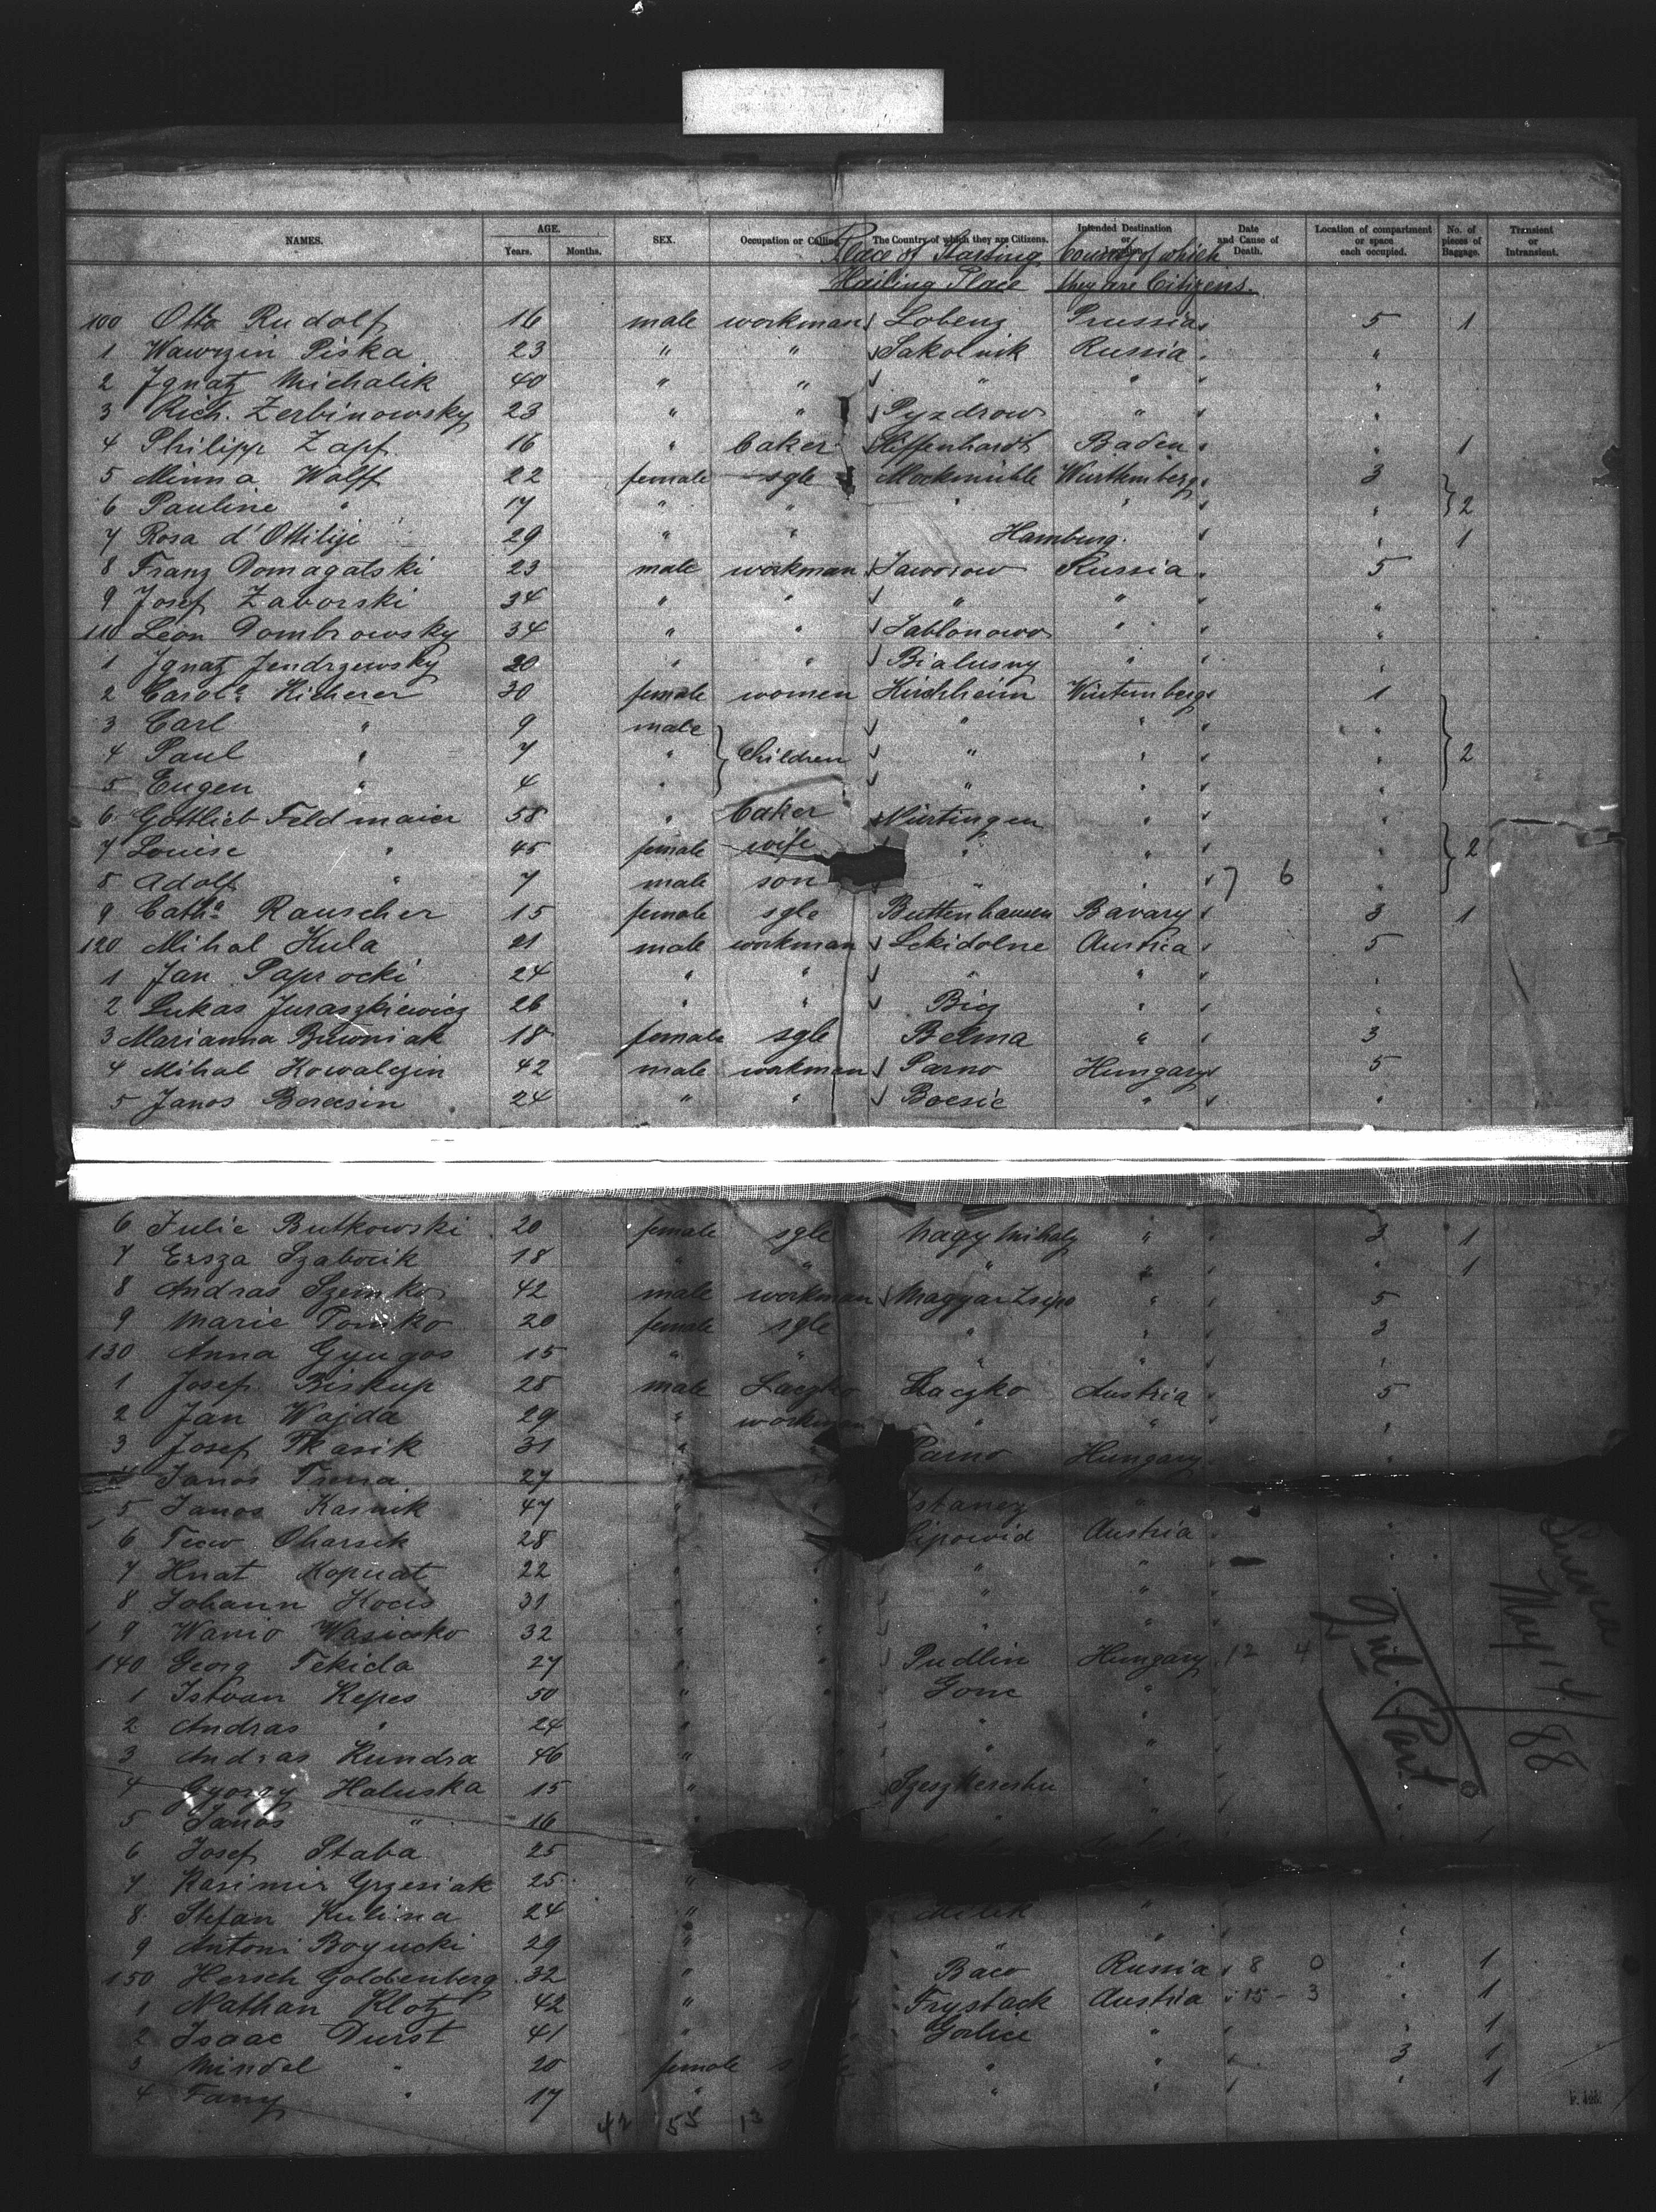 NAMES. AGE. Years. Months. SEX. Occupation or Calling. The Country of which they are Citizens. Intended Destination or Location. Date and Cause of Death. Location of compartment or space each occupied. No. of pieces of Baggage. Transient or Intransient.
Place of Starting Country of which
Hailing Place they are Citizens.
100 Otto Rudolf 16 male workman Lobenz Prussia 5 1
1 Wawrzin Piska 23 " " Sakolnik Russia "
2 Ignatz Michalik 40 " " " " "
3 Rich. Zerbinowsky 23 " " Pyzdrow " "
4 Philipp Zapf 16 " baker Siffenhardt Baden " 1
5 Minna Wolff 22 female sgle Mockmühle Würthemberg 3
6 Pauline " 17 " " " " " } 2
7 Rosa d'Ottilije 29 " " Hamburg. " 1
8 Franz Domagalski 23 male workman Jaworow Russia 5
9 Josef Zaborski 34 " " " " "
110 Leon Dombrowsky 34 " " Jablonowo " "
1 Ignatz Jendrzewsky 20 " " Bialusny " "
2 Carola Kicherer 30 female women Kirchheim Würtemberg 1
3 Carl " 9 male " " "
4 Paul " 7 " } Children " " " } 2
5 Eugen " 4 " " " "
6 Gottlieb Feldmaier 58 " baker Nürtingen " "
7 Louise " 45 female wife " " " } 2
8 Adolf " 7 male son " " 7 6 "
9 Catha Rauscher 15 female sgle Buttenhausen Bavary 3 1
120 Mihal Kula 21 male workman Lekidolne Austria 5
1 Jan Paprocki 24 " " " " "
2 Lukas Juraszkiewicz 26 " " Big " "
3 Marianna Buwniak 18 female sgle Belma " 3
4 Mihal Kowalczin 42 male workman Parno Hungary 5
5 Janos Borecsin 24 " " Bocsic " "
6 Julie Butkowski 20 female sgle Nagy Mihaly " 3 1
7 Ersza Szabocik 18 " " " " " 1
8 Andras Szemko 42 male workman Magyar Zsipo " 5
9 Marie Tomko 20 female sgle " " 3
130 Anna Gyugos 15 " " " " "
1 Josef Biskup 28 male Laczko Laczko Austria 5
2 Jan Wajda 29 " workman " " "
3 Josef Tkasik 31 " " Parno Hungary "
4 Janos 27 "
5 Janos Kasnik 47 " " "
6 Oharsek 28 " " Lipowid Austria "
7 Hnat Kopuat 22 " " " " "
8 Johann Kocis 31 " " "
9 Wanio Wasicsko 32 " " " "
140 Georg Tekicla 27 " " Pudlin Hungary 12 4
1 Istvan Kepes 50 " " Gonc "
2 Andras " 24 " " "
3 Andras Kundra 46 " " "
4 Gyorgy Haluska 15 " Szeszkereshu "
5 Janos " 16 "
6 Josef Staba 25 1
7 Kasimir Grzesiak 25 "
8 Stefan Kulina 24 " "
9 Antoni Bogucki 29 " " "
150 Hersch Goldenberg 32 " Baco Russia 8 0 " 1
1 Nathan Klotz 42 " Frystack Austria 15 - 3 " 1
2 Isaac Durst 41 " Gorlice " " 1
3 Mindel " 20 female " " 3 1
4 Fany " 17 " " " " 1
42 55 13
May 14/88